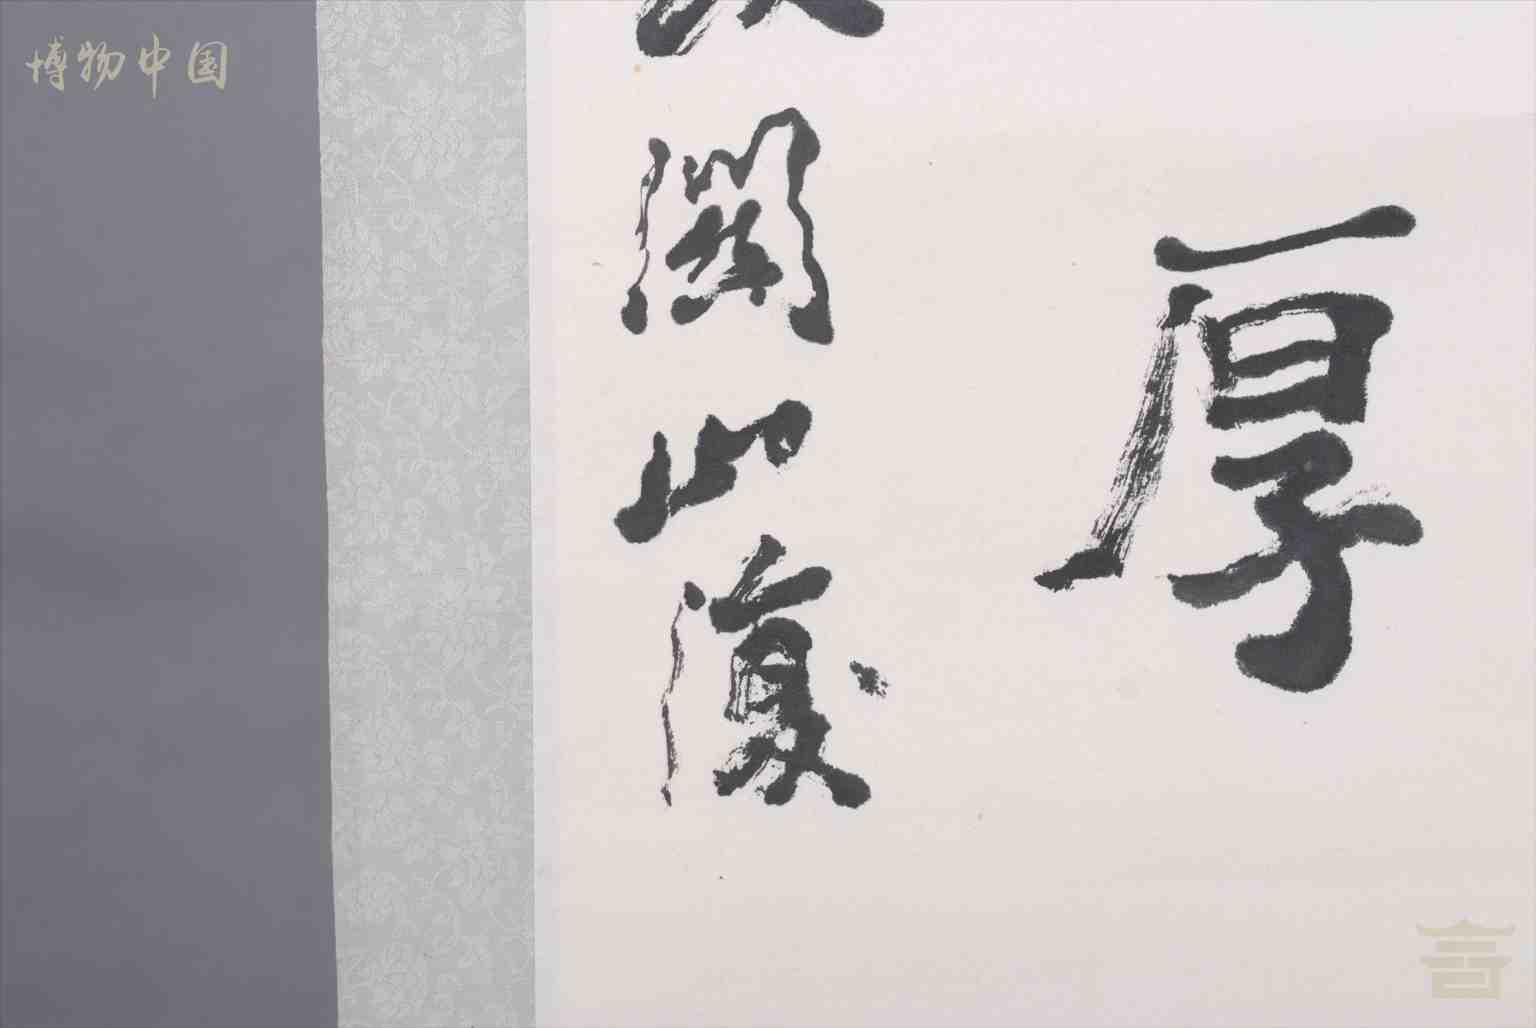 博物中国
厚
關山復